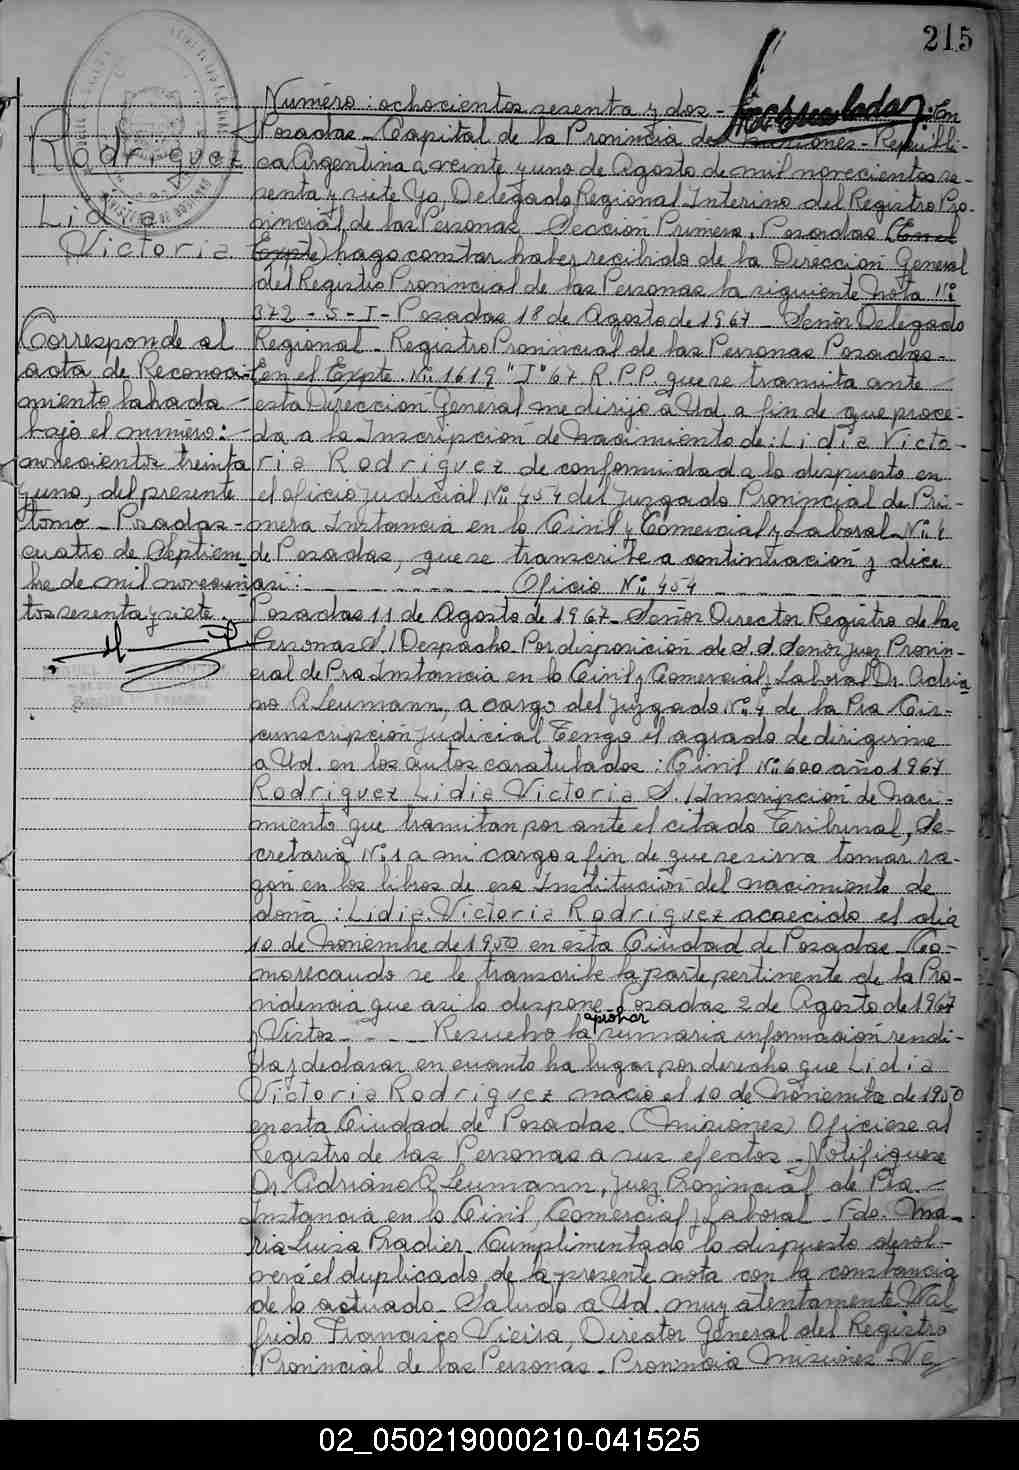 215
Rodriguez
Lidia
Victoria
Corresponde al
acta de Reconoci-
miento labrada
bajo el número:
novecientos treinta
y uno, del presente
tomo - Posadas -
cuatro de Septiem
bre de mil novecien
tos sesenta y siete.
Número: ochocientos sesenta y dos - En
Posadas - Capital de la Provincia de Misiones - Repúbli-
ca Argentina a veinte y uno de Agosto de mil novecientos se-
senta y siete Yo, Delegado Regional Interino del Registro Pro-
vincial de las Personas Sección Primera, Posadas (En el
Expte) hago constar haber recibido de la Dirección General
del Registro Provincial de las Personas la siguiente Nota Nº
372 - S - I - Posadas 18 de Agosto de 1967 - Señor Delegado
Regional - Registro Provincial de las Personas Posadas -
En el Expte. Nº 1619 "I" 67 R.P.P. que se tramita ante
esta Dirección General me dirijo a Ud. a fin de que proce-
da a la Inscripción de nacimiento de: Lidia Victo-
ria Rodriguez de conformidad a lo dispuesto en
el oficio judicial Nº 454 del Juzgado Provincial de Pri-
mera Instancia en lo Civil y Comercial y Laboral Nº
de Posadas, que se transcribe a continuación y dice
así: Oficio Nº 454
Posadas 11 de Agosto de 1967 - Señor Director Registro de las
Personas S/Despacho Por disposición de S.S. Señor Juez Provin-
cial de Pra Instancia en lo Civil y Comercial y Laboral Dr. Adria
no R. Leumann, a cargo del Juzgado Nº 4 de la Pra Cir-
cunscripción Judicial Tengo el agrado de dirigirme
a Ud. en los autos caratulados: Civil Nº 600 año 1967
Rodriguez Lidia Victoria S/Inscripción de Naci-
miento que tramitan por ante el citado Tribunal, Se-
cretaría Nº 1 a mi cargo a fin de que se sirva tomar ra-
zón en los libros de esa Institución del nacimiento de
doña: Lidia Victoria Rodriguez acaecido el día
10 de Noviembre de 1950 en esta Ciudad de Posadas - Co-
mo recaudo se le transcribe la parte pertinente de la Pro-
videncia que así lo dispone Posadas 2 de Agosto de 1967
aprobar
Vistos - - - Resuelvo la sumaria información rendi-
da y declarar en cuanto ha lugar por derecho que Lidia
Victoria Rodriguez nació el 10 de Noviembre de 1950
en esta Ciudad de Posadas (Misiones) Ofíciese al
Registro de las Personas a sus efectos - Notifíquese
Dr. Adriano R. Leumann, Juez Provincial de Pra.
Instancia en lo Civil, Comercial y Laboral - Fdo. Ma-
ria Luisa Pradier - Cumplimentado lo dispuesto devol-
verá el duplicado de la presente nota con la constancia
de lo actuado - Saludo a Ud. muy atentamente Wal
frido Francisco Vieira, Director General del Registro
Provincial de las Personas - Provincia Misiones - Ve
02_050219000210-041525